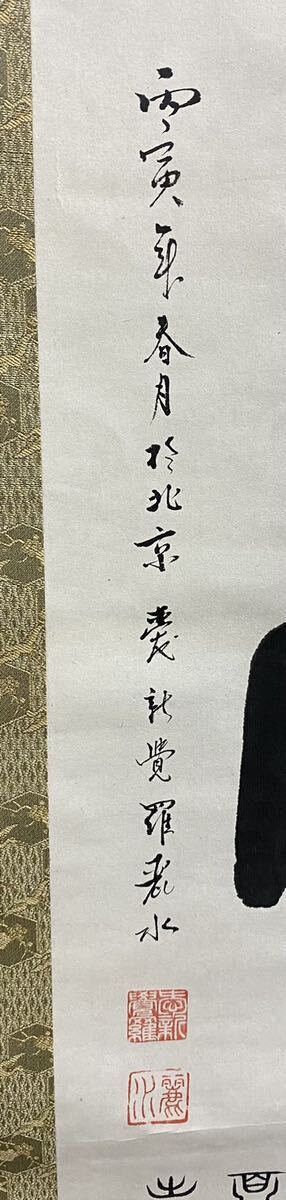 丙寅年春月於北京愛新覺羅麗水
愛新覺羅
麗水